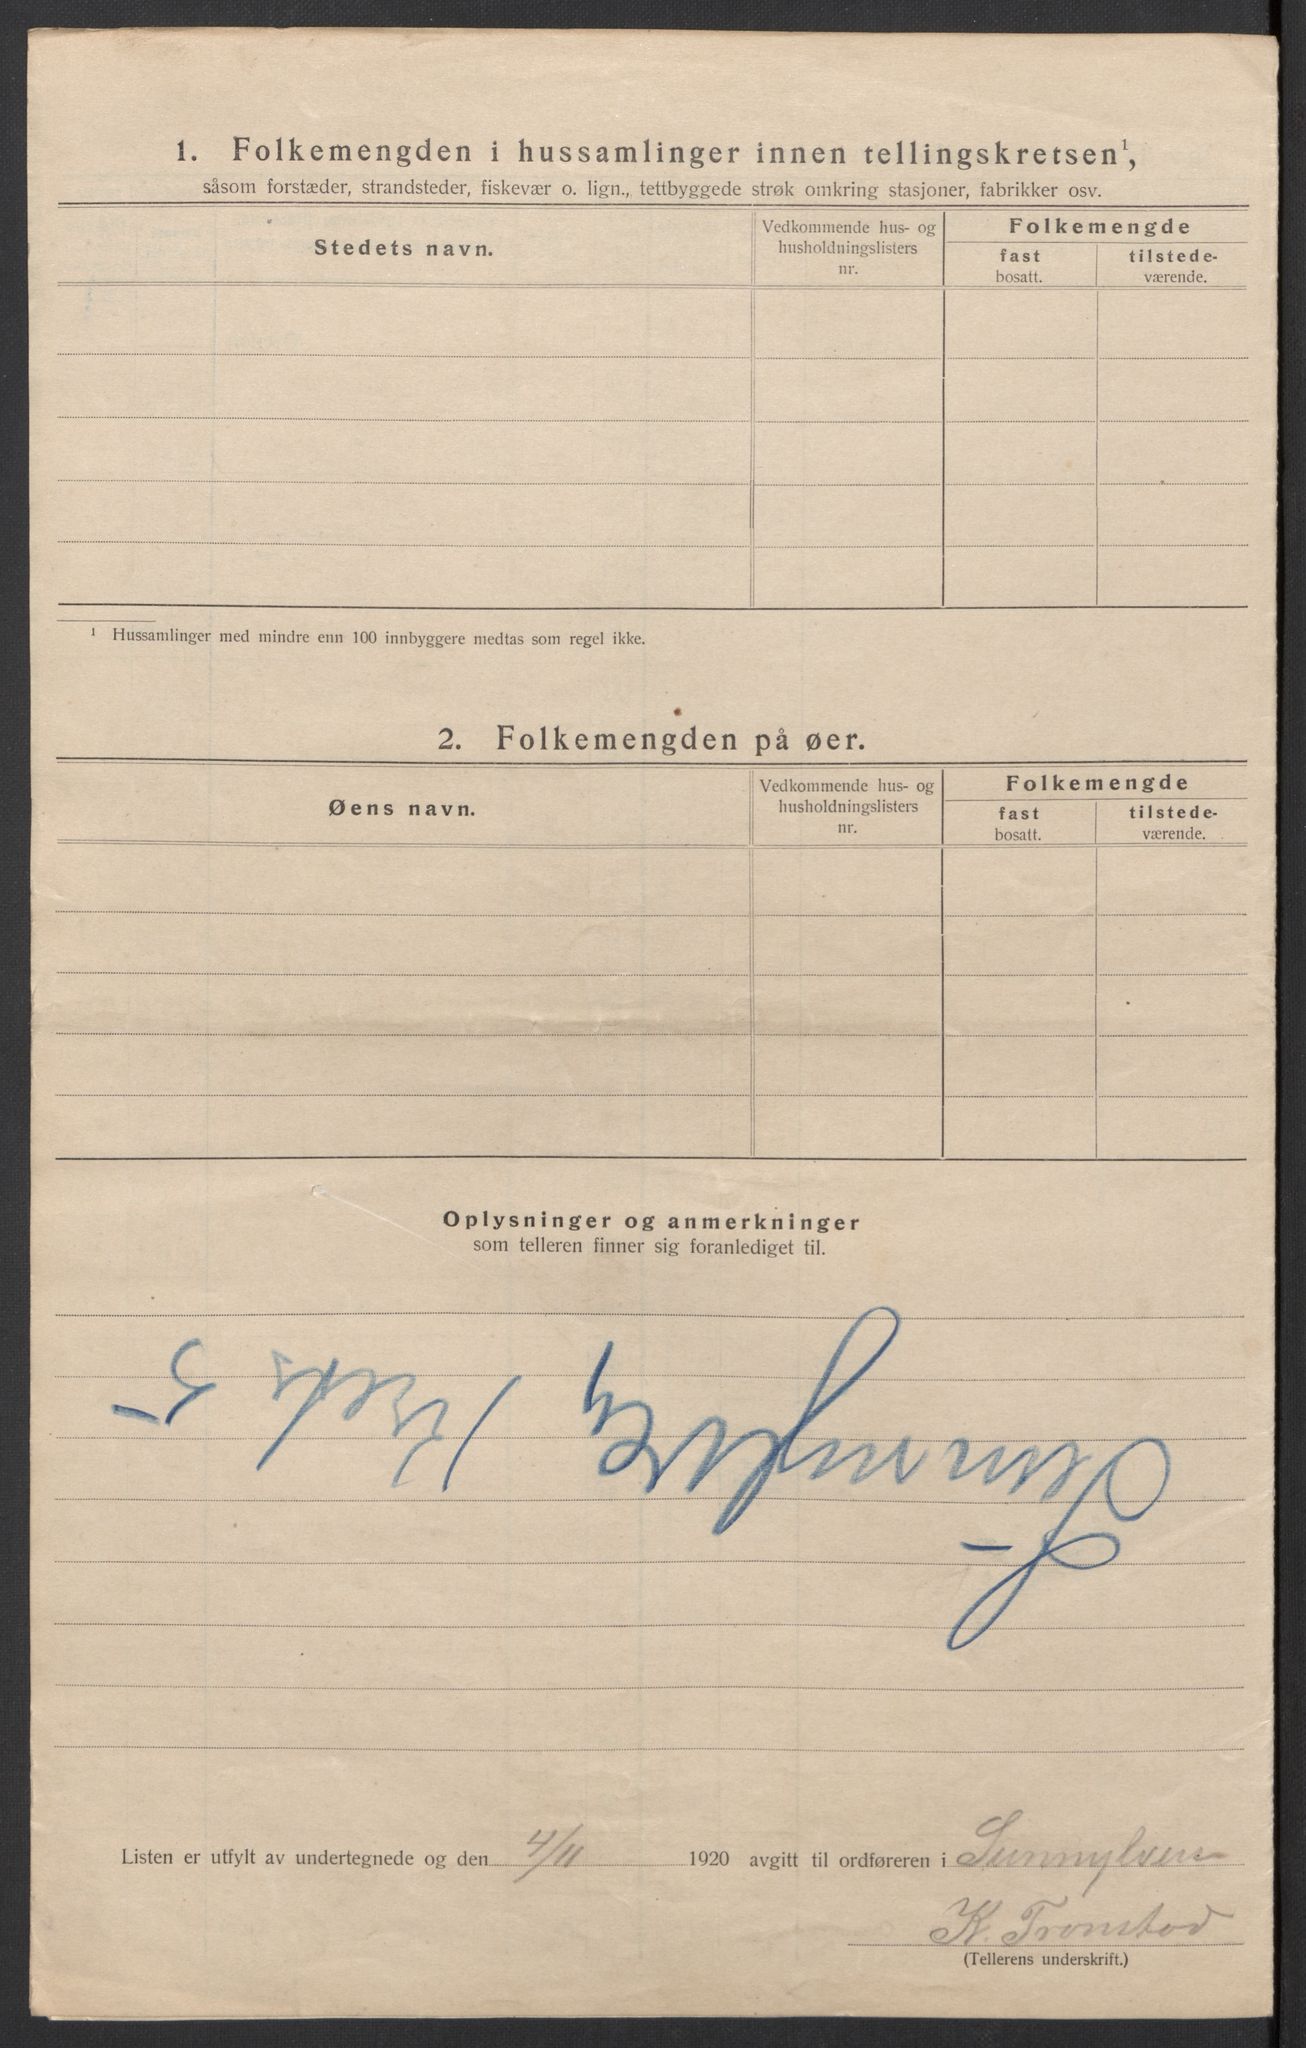 1. Folkemengden i hussamlinger innen tellingskretsen¹,
såsom forstæder, strandsteder, fiskevær o. lign., tettbyggede strøk omkring stasjoner, fabrikker osv.
Stedets navn.
Vedkommende hus- og
husholdningslisters
nr.
Folkemengde
fast
bosatt.
tilstede-
værende.
¹ Hussamlinger med mindre enn 100 innbyggere medtas som regel ikke.
2. Folkemengden på øer.
Øens navn.
Vedkommende hus- og
husholdningslisters
nr.
Folkemengde
fast
bosatt.
tilstede-
værende.
Oplysninger og anmerkninger
som telleren finner sig foranlediget til.
Sunnylven Krets 5
Listen er utfylt av undertegnede og den 4/11 1920 avgitt til ordføreren i Sunnylven
K. Tronstad
(Tellerens underskrift.)